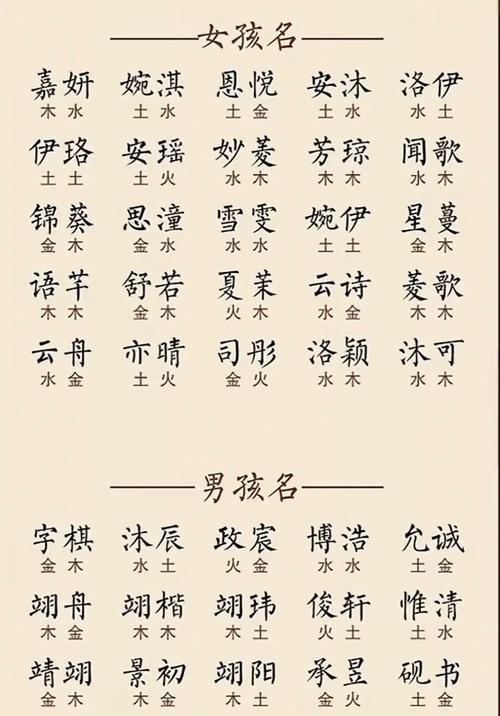 女孩名
嘉妍 婉淇 恩悦 安沐 洛伊
木水 土水 土金 土水 水土
伊珞 安瑶 妙菱 芳琼 闻歌
土土 土火 水木 木木 水木
锦葵 思潼 雪雯 婉伊 星蔓
金木 金水 水水 土土 金木
语芊 舒若 夏茉 云诗 菱歌
木木 金木 火木 水金 木木
云舟 亦晴 司彤 洛颖 沐可
水金 土火 金火 水木 水木
男孩名
字棋 沐辰 政宸 博浩 允诚
金木 水土 火金 水水 土金
翊舟 翊楷 翊玮 俊轩 惟清
木金 木木 木土 火土 土水
靖翊 景初 翊阳 承昱 砚书
金木 木金 木土 金火 土金